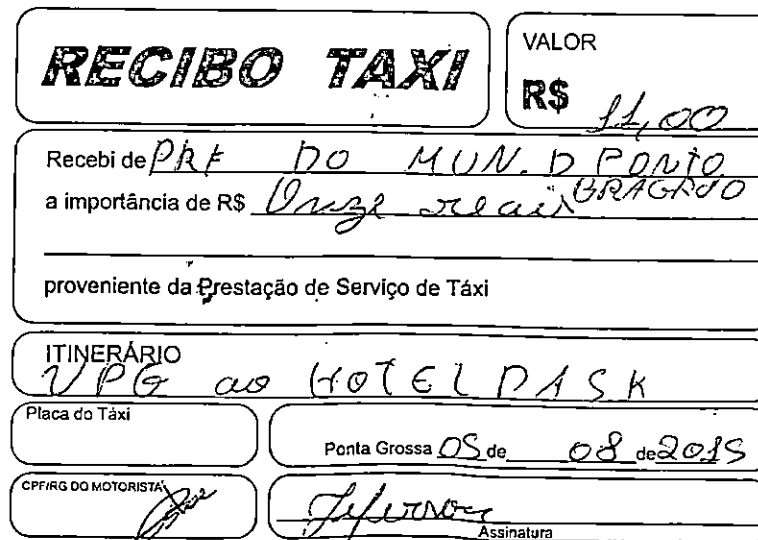 RECIBO TAXI
VALOR
R$ 11,00
Recebi de PRE DO MUN. D PONTO
BRAGADO
a importância de R$ Onze reais
proveniente da Prestação de Serviço de Táxi
ITINERÁRIO
VPG ao HOTEL DASK
Placa do Táxi
Ponta Grossa 05 de 08 de 2015
CPF/RG DO MOTORISTA
Jeferson
Assinatura